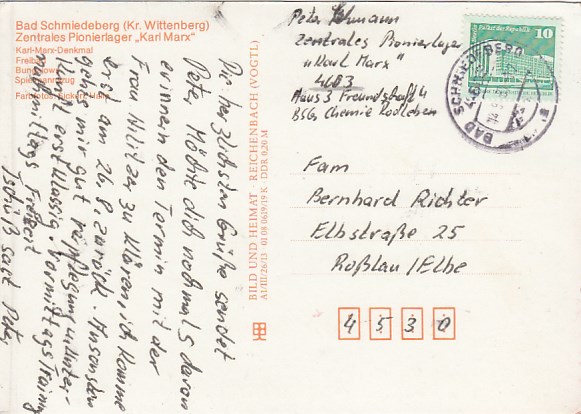 Bad Schmiedeberg (Kr. Wittenberg)
Zentrales Pionierlager „Karl Marx"
Karl-Marx-Denkmal
Freibad
Bungalows
Spielmannszug
Die herzlichsten Grüße sendet
Peter. Möchte dich nochmals daran
erinnern den Termin mit der
Frau zu klären, ich komme
erst am 26.8. zurück. Ansonsten
geht es mir gut Verpflegung u. Unter-
kunft erstklassig. Vormittags Training
nachmittags Freizeit
Tschüß sagt Peter
BILD UND HEIMAT · REICHENBACH (VOGTL)
A1/III/26/13 01 08 0619/19 K DDR 0,20 M
Peter
Zentrales Pionierlager
"Karl Marx"
4603
Haus 3 Freundschaft 4
BSG Chemie Rodleben
10
DDR
BAD SCHMIEDEBERG
Fam
Bernhard Richter
Elbstraße 25
Roßlau/Elbe
4530